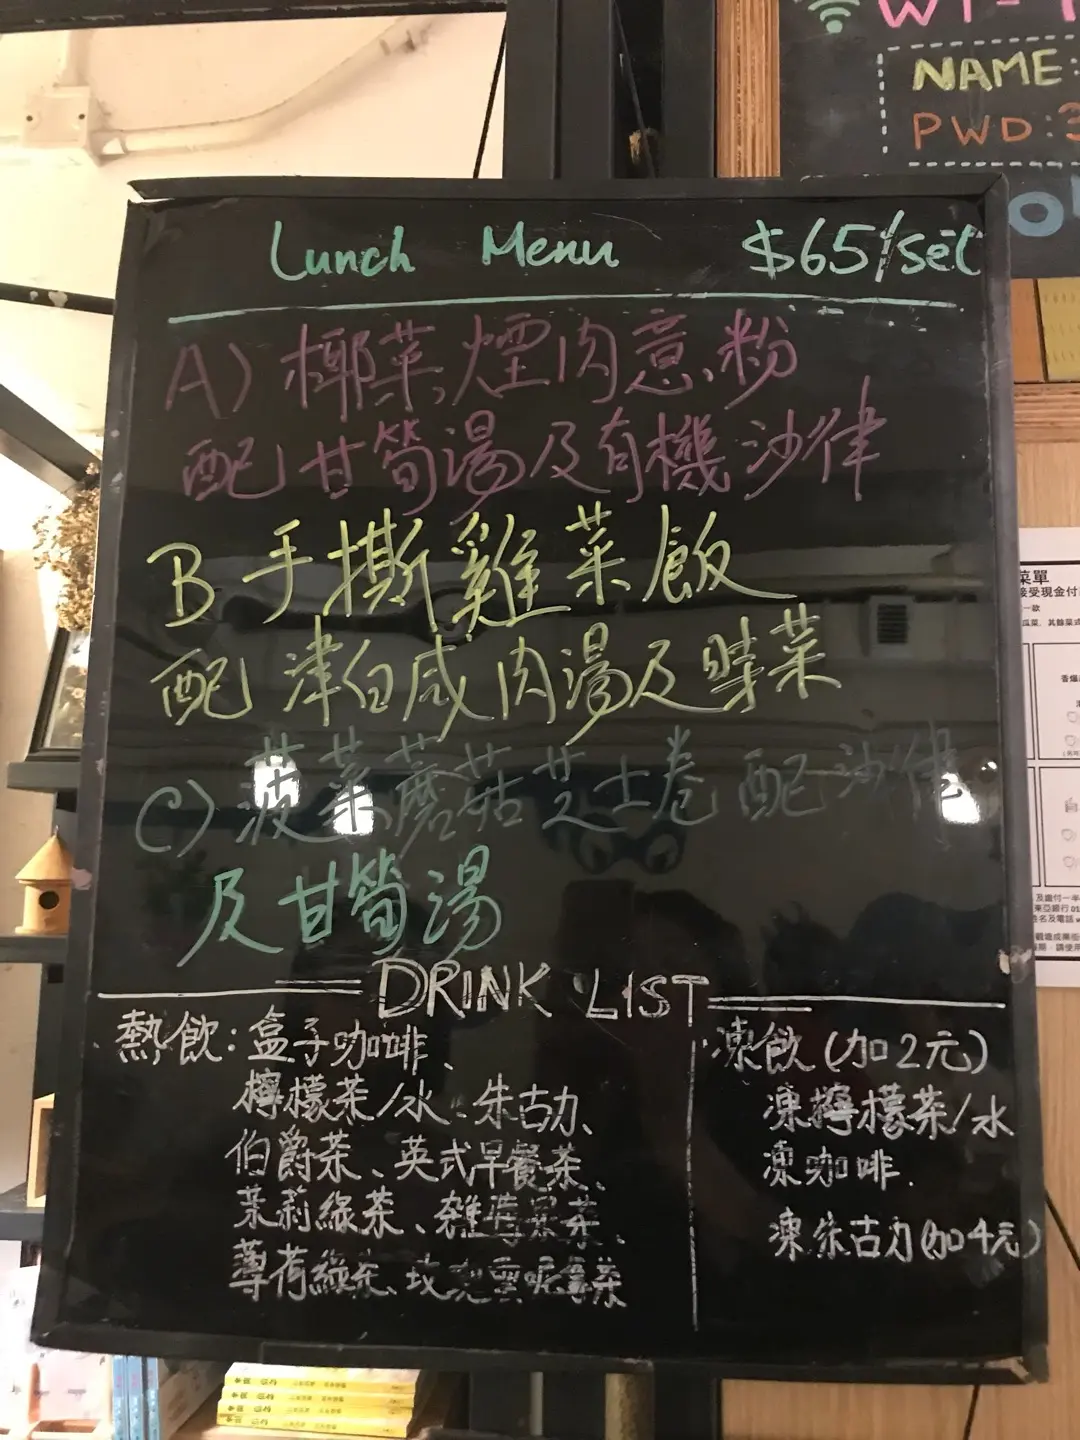 NAME:
PWD:3
Lunch Menu $65/set
A) 椰菜煙肉意粉
配甘筍湯及有機沙律
B 手撕雞菜飯
配 津白咸肉湯及時菜
C) 菠菜蘑菇芝士卷 配沙律
及甘筍湯
DRINK LIST
熱飲：盒子咖啡、
檸檬茶/水、朱古力、
伯爵茶、英式早餐茶、
茉莉綠茶、雜莓果茶、
薄荷綠茶、玫瑰雲呢拿茶
凍飲(加2元)
凍檸檬茶/水
凍咖啡.
凍朱古力(加4元)
菜單